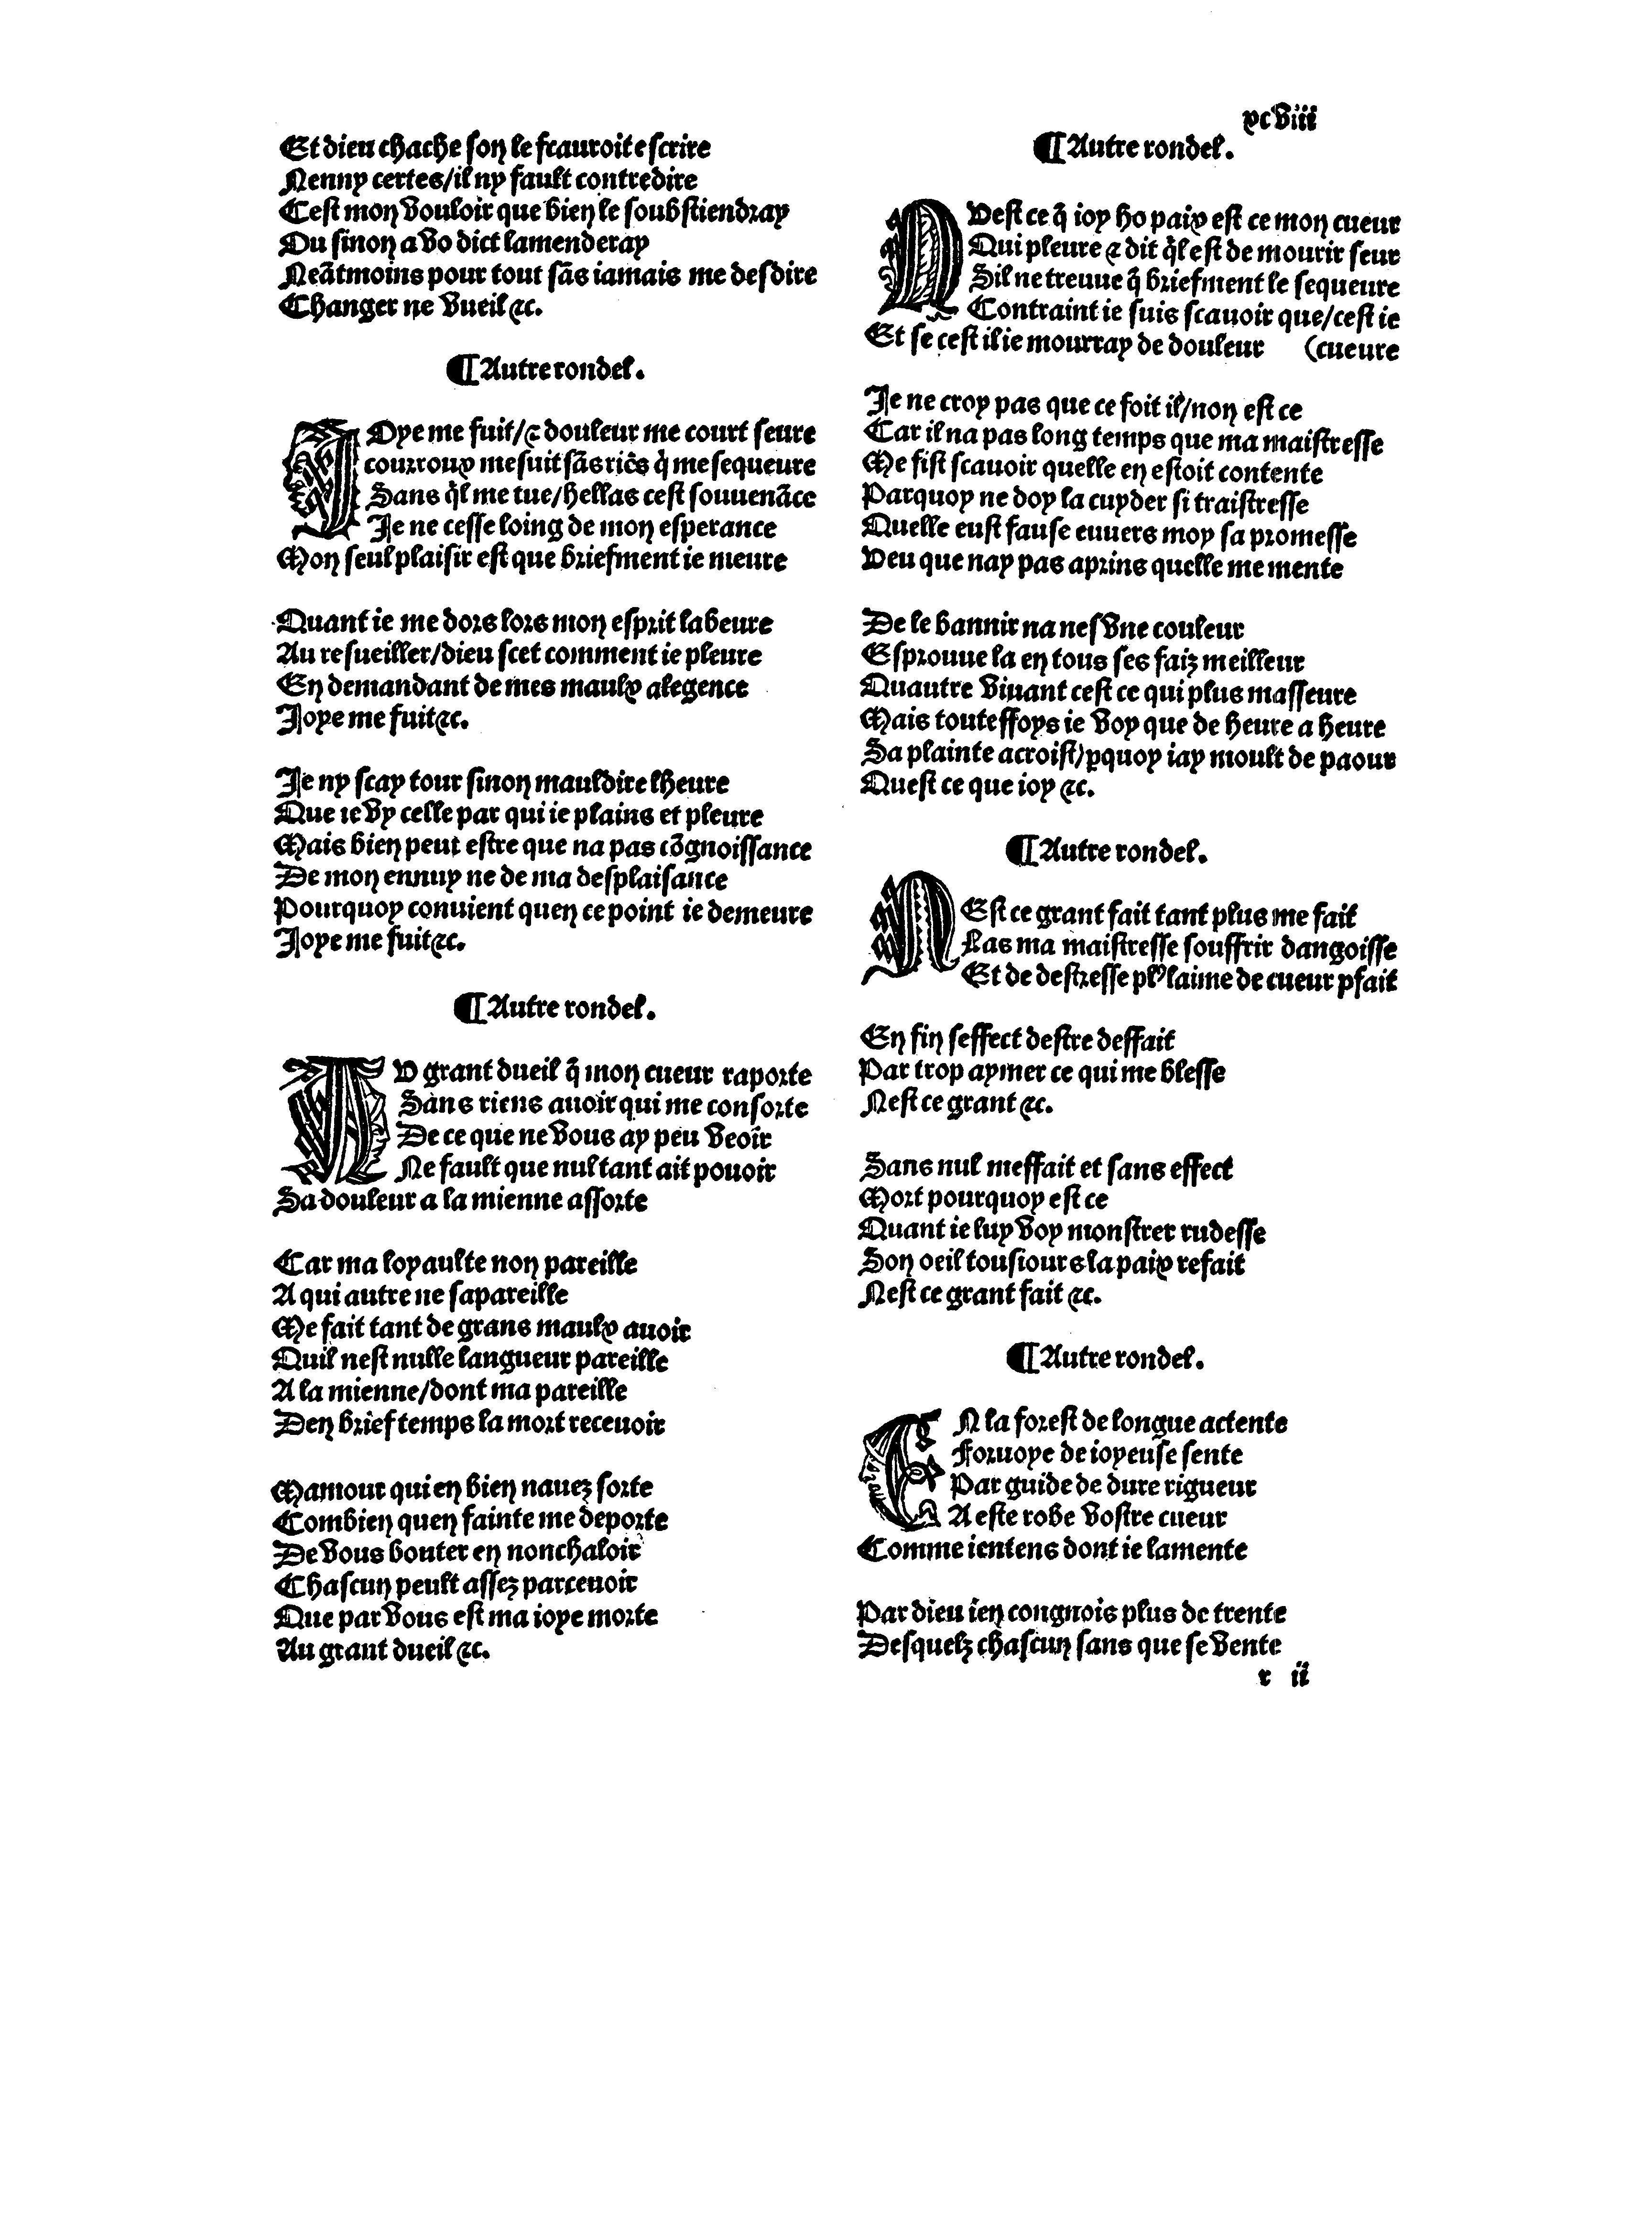 xcviii
Et dieu chache son le scauroit escrire
Nenny certes/il ny fault contredire
Cest mon vouloir que bien le soubstiendray
Ou sinon a vo dict lamenderay
Neãtmoins pour tout sãs iamais me desdire
Changer ne vueil &c.
¶Autre rondel.
IOye me fuit/& douleur me court seure
courroux me suit sãs riẽs q̃ me sequeure
Sans q̃l me tue/hellas cest souuenãce
Je ne cesse loing de mon esperance
Mon seul plaisir est que briefment ie meure
Quant ie me dors lors mon esprit labeure
Au resueiller/dieu scet comment ie pleure
En demandant de mes maulx alegence
Joye me fuit &c.
Je ny scay tour sinon mauldire lheure
Que ie vy celle par qui ie plains et pleure
Mais bien peut estre que na pas cõgnoissance
De mon ennuy ne de ma desplaisance
Pourquoy conuient quen ce point ie demeure
Joye me fuit &c.
¶Autre rondel.
AV grant dueil q̃ mon cueur raporte
Sans riens auoir qui me conforte
De ce que ne vous ay peu veoir
Ne fault que nul tant ait pouoir
Sa douleur a la mienne assorte
Car ma loyaulte non pareille
A qui autre ne sapareille
Me fait tant de grans maulx auoir
Quil nest nulle langueur pareille
A la mienne/dont ma pareille
Den brief temps la mort receuoir
Mamour qui en bien nauez sorte
Combien quen fainte me deporte
De vous bouter en nonchaloir
Chascun peult assez parceuoir
Que par vous est ma ioye morte
Au grant dueil &c.
¶Autre rondel.
QVest ce q̃ ioy ho paix est ce mon cueur
Qui pleure & dit q̃l est de mourir seur
Sil ne treuue q̃ briefment le sequeure
Contraint ie suis scauoir que/cest ie
Et se cest il ie mourray de douleur (cueure
Je ne croy pas que ce soit il/non est ce
Car il na pas long temps que ma maistresse
Me fist scauoir quelle en estoit contente
Parquoy ne doy la cuyder si traistresse
Quelle eust fause euuers moy sa promesse
Veu que nay pas aprins quelle me mente
De le bannir na nesvne couleur
Esprouue la en tous ses faiz meilleur
Quautre viuant cest ce qui plus masseure
Mais touteffoys ie voy que de heure a heure
Sa plainte acroist/pquoy iay moult de paour
Quest ce que ioy &c.
¶Autre rondel.
NEst ce grant fait tant plus me fait
Las ma maistresse souffrir dangoisse
Et de destresse pl9 laime de cueur pfait
En fin seffect destre deffait
Par trop aymer ce qui me blesse
Nest ce grant &c.
Sans nul meffait et sans effect
Mort pourquoy est ce
Quant ie luy voy monstrer rudesse
Son oeil tousiours la paix refait
Nest ce grant fait &c.
¶Autre rondel.
EN la forest de longue actente
Foruoye de ioyeuse sente
Par guide de dure rigueur
A este robe vostre cueur
Comme ientens dont ie lamente
Par dieu ien congnois plus de trente
Desquelz chascun sans que se vente
r ii